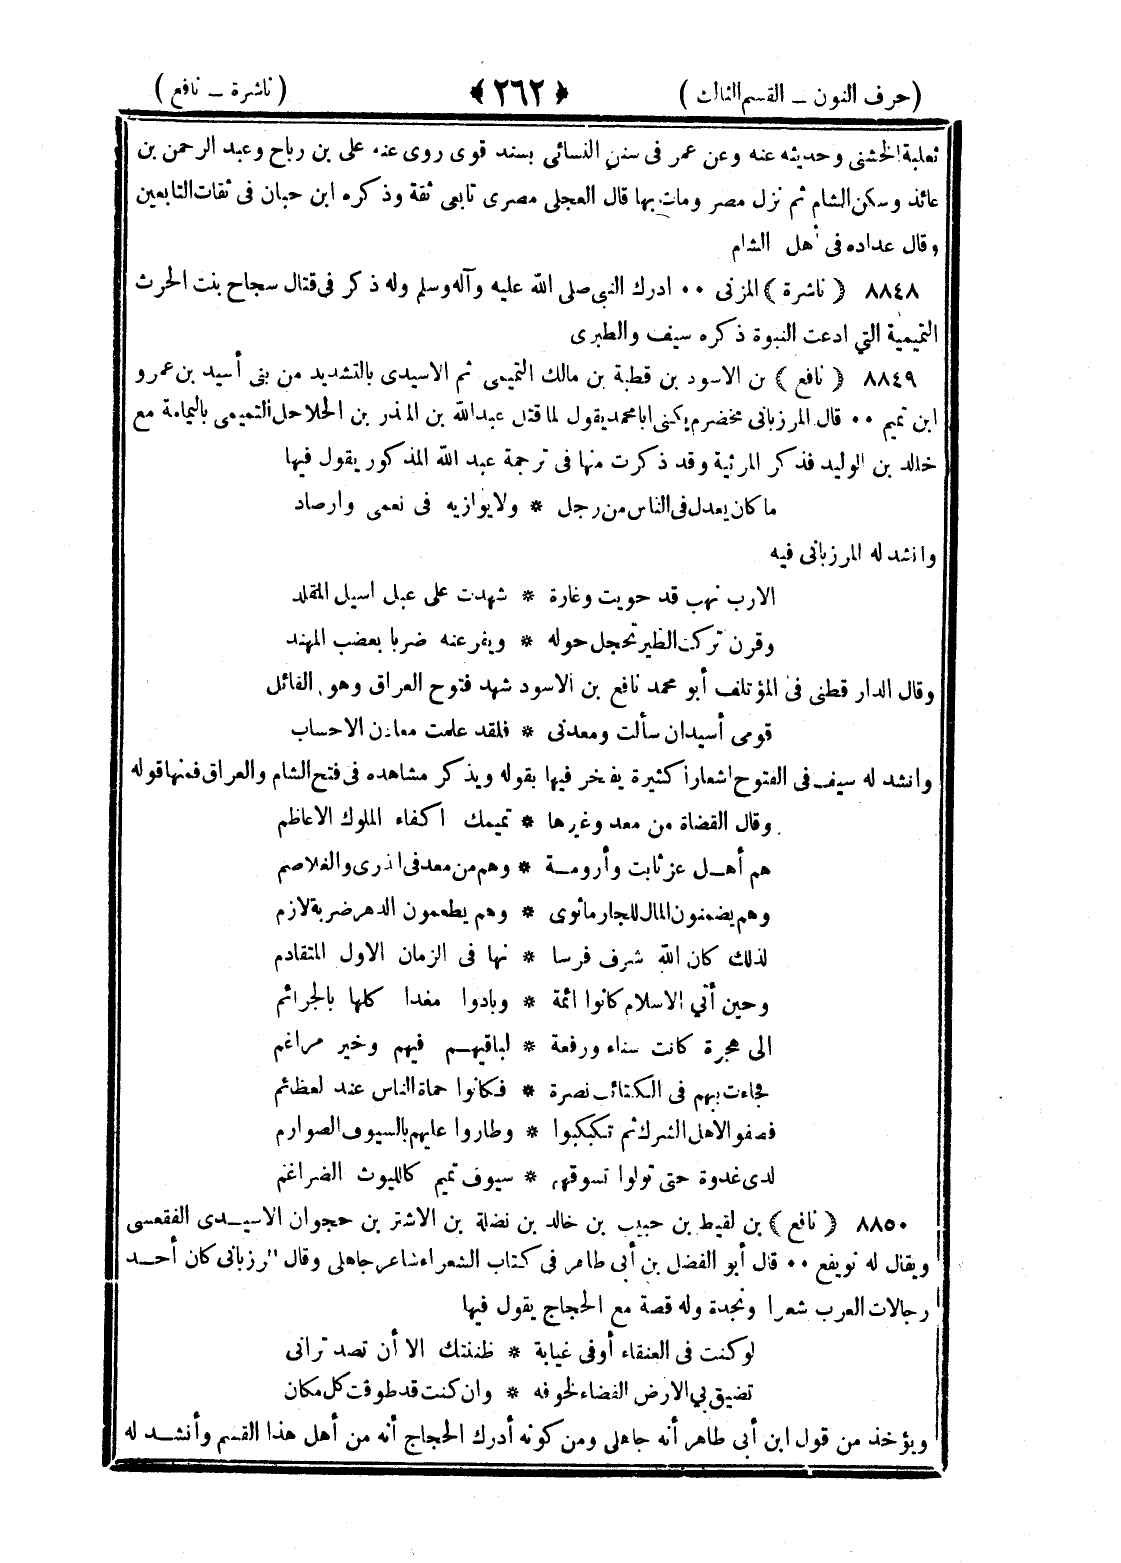 (حرف النون – القسم الثالث) ﴿٢٦٢﴾ (ناشرة – نافع)
ثعلبة الخشنى وحديثه عنه وعن عمر فى سنن النسائى بسند قوى روى عنه على بن رباح وعبد الرحمن بن
عائذ وسكن الشام ثم نزل مصر ومات بها قال العجلى مصرى تابعى ثقة وذكره ابن حبان فى ثقات التابعين
وقال عداده فى أهل الشام
٨٨٤٨ (ناشرة) المزنى ٠٠ ادرك النبى صلى الله عليه وآله وسلم وله ذكر فى قتال سجاح بنت الحرث
التميمية التي ادعت النبوة ذكره سيف والطبرى
٨٨٤٩ (نافع) بن الاسود بن قطبة بن مالك التميمى ثم الاسيدى بالتشديد من بنى أسيد بن عمرو
ابن تميم ٠٠ قال المرزبانى مخضرم يكنى ابا محمد يقول لما قتل عبدالله بن المنذر بن الحلاحل التميمى باليمامة مع
خالد بن الوليد فذكر المرثية وقد ذكرت منها فى ترجمة عبد الله المذكور يقول فيها
ما كان يعدل فى الناس من رجل * ولا يوازيه فى نعمى وارصاد
وانشد له المرزبانى فيه
الارب نهب قد حويت وغارة * شهدت على عبل اسيل المقلد
وقرن تركت الطير تحجل حوله * ويفرعنه ضربا بعضب المهند
وقال الدار قطنى فى المؤتلف أبو محمد نافع بن الاسود شهد فتوح العراق وهو القائل
قومى أسيدان سألت ومعدنى * فلقد علمت معادن الاحساب
وانشد له سيف فى الفتوح اشعارا كثيرة يفخر فيها بقوله ويذكر مشاهده فى فتح الشام والعراق فمنها قوله
وقال القضاة من معد وغيرها * تميمك اكفاء الملوك الاعاظم
هم أهـل عز ثابت وأرومـة * وهم من معد فى الذرى والغلاصم
وهم يضمنون المال للجار ماثوى * وهم يطعمون الدهر ضربة لازم
لذلك كان الله شرف فرسا * نها فى الزمان الاول المتقادم
وحين أتي الاسلام كانوا ائمة * وبادوا معدا كلها بالجرائم
الى هجرة كانت سناء ورفعة * لباقيهـم فيهم وخير مراغم
فجاءت بهم فى الكتائب نصرة * فكانوا حماة الناس عند لعظائم
فصفو الاهل الشرك ثم تكبكبوا * وطاروا عليهم بالسيوف الصوارم
لدى غدوة حتى تولوا تسوقهم * سيوف تميم كالليوث الضراغم
٨٨٥٠ (نافع) بن لقيط بن حبيب بن خالد بن نضلة بن الاشتر بن حجوان الاسيـدى الفقعسى
ويقال له نويفع ٠٠ قال أبو الفضل بن أبى طاهر فى كتاب الشعراء شاعر جاهلى وقال المرزبانى كان أحـد
رجالات العرب شعرا ونجدة وله قصة مع الحجاج يقول فيها
لو كنت فى العنقاء أوفى غيابة * ظننتك الا أن تصد ترانى
تضيق بي الارض الفضاء لخوفه * وان كنت قد طوقت كل مكان
ويؤخذ من قول ابن أبى طاهر أنه جاهلى ومن كونه أدرك الحجاج أنه من أهل هذا القسم وأنشـد له